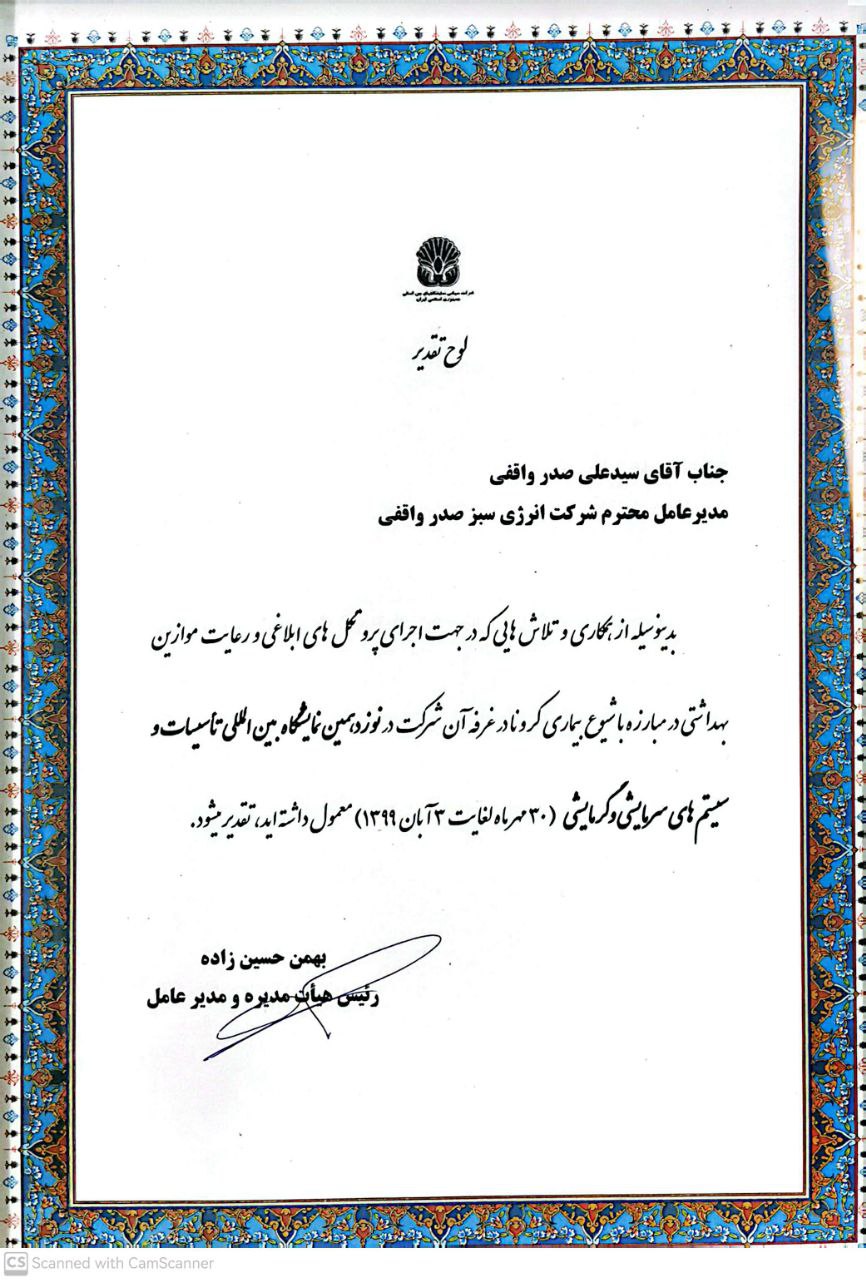 شرکت سهامی نمایشگاههای بین المللی
جمهوری اسلامی ایران
لوح تقدیر
جناب آقای سیدعلی صدر واقفی
مدیرعامل محترم شرکت انرژی سبز صدر واقفی
بدینوسیله از همکاری و تلاش هایی که در جهت اجرای پروتکل های ابلاغی و رعایت موازین
بهداشتی در مبارزه با شیوع بیماری کرونا در غرفه آن شرکت در نوزدهمین نمایشگاه بین المللی تأسیسات و
سیستم های سرمایشی و گرمایشی (۳۰ مهرماه لغایت ۳ آبان ۱۳۹۹) معمول داشته اید، تقدیر میشود.
بهمن حسین زاده
رئیس هیأت مدیره و مدیر عامل
CS Scanned with CamScanner